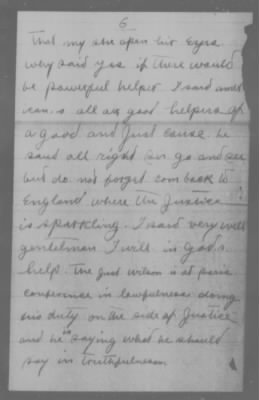 6
That my she open his Eyes
why said yes if there would
be powerful helper I said
all are good helpers of
a good and Just cause he
said all right sir go and see
but do not forget com back to
England where the Justice
is sparkling. I said very well
gentelman I will in God,s
help. The Just Wilson is at paris
conference in lawfulness doing
his duty on the side of Justice
and he is saying what he should
say in truthfulness.